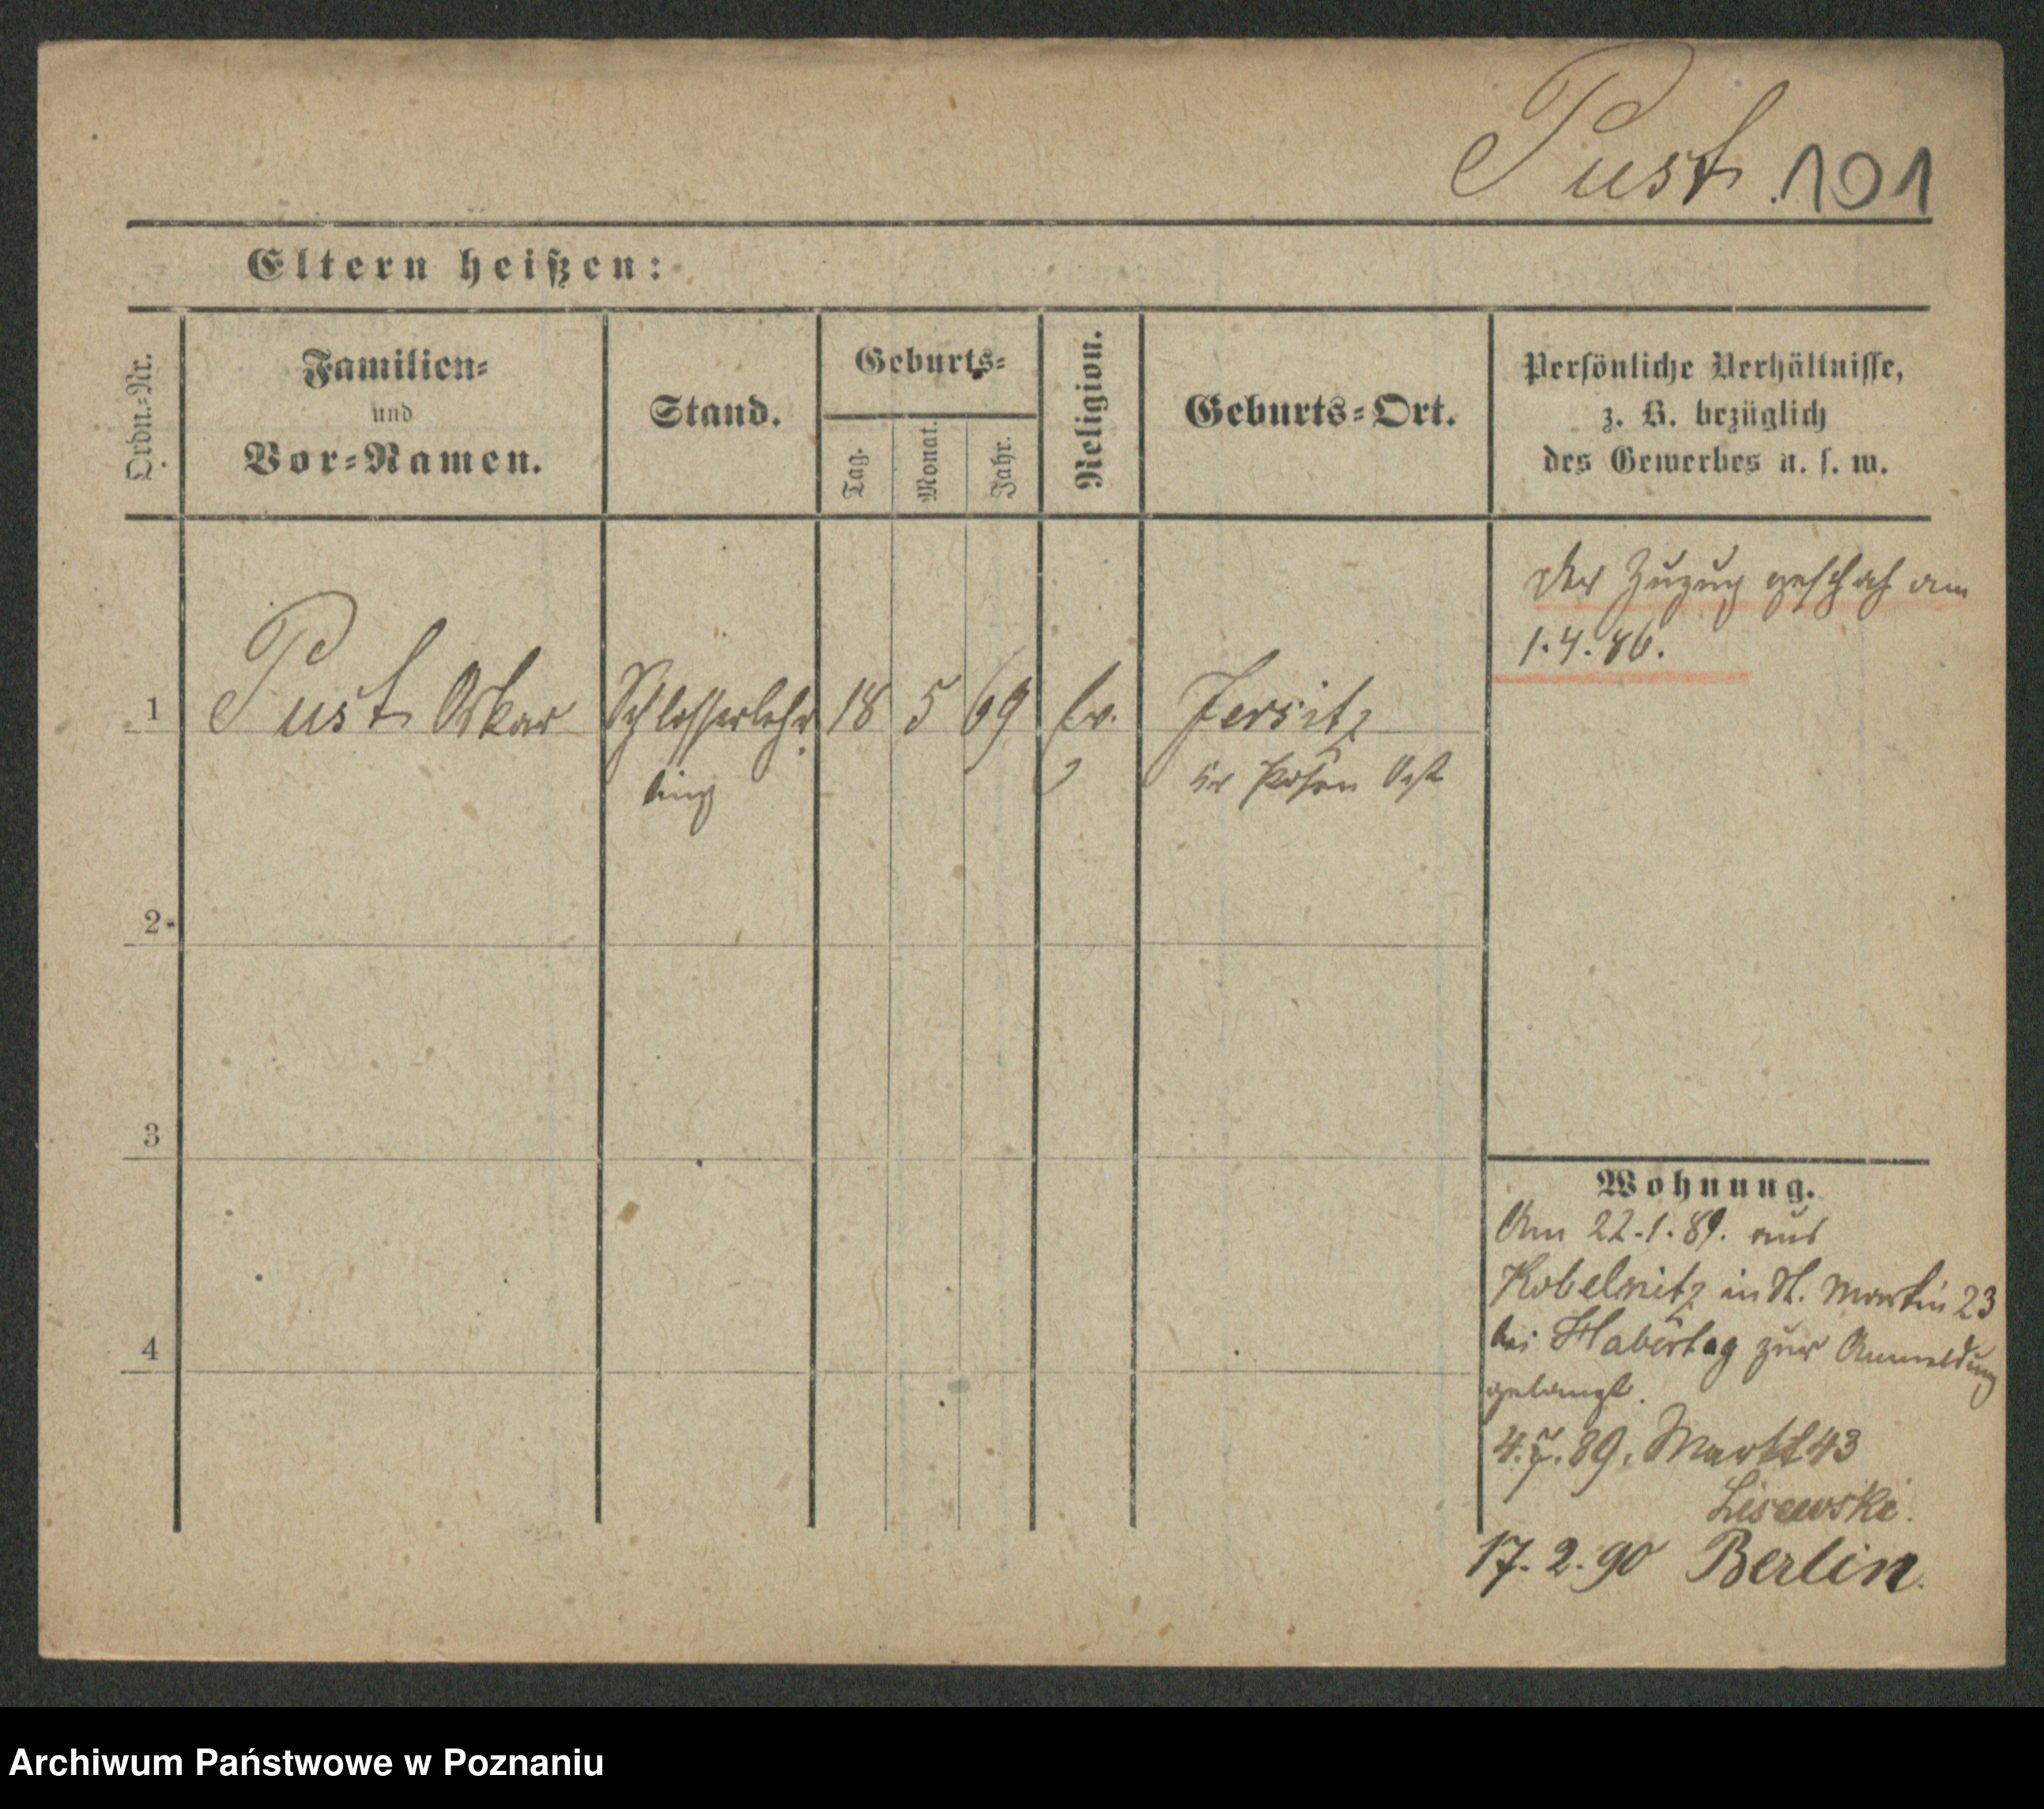 Pust. 101
Eltern heißen:
Ordn.-Nr.
Familien-
und
Vor-Namen.
Stand.
Geburts-
Tag.
Monat.
Jahr.
Religion.
Geburts-Ort.
Persönliche Verhältnisse,
z. B. bezüglich
des Gewerbes u. s. w.
Der Zuzug geschah am
1.4.86.
1 Pust Oskar Schlosserlehr 18 5 69 Ev. Jersitz
ling Kr Posen Ost
2
3
4
Wohnung.
Am 22.1.89. aus
Kobelnitz in St. Martin 23
bei Habertag zur Anmeldung
gelangt.
4.7.89. Markt 43
Lisewski.
17.2.90 Berlin.
Archiwum Państwowe w Poznaniu